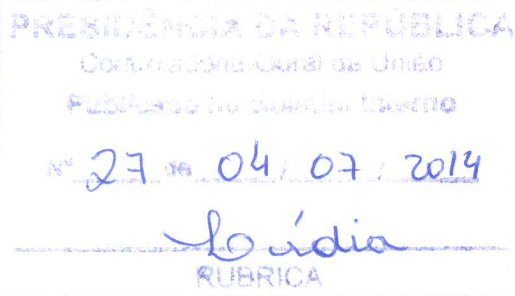 PRESIDÊNCIA DA REPÚBLICA
Controladoria-Geral da União
Publicado no Boletim Interno
Nº 27 de 04 / 07 / 2014
Lídia
RUBRICA